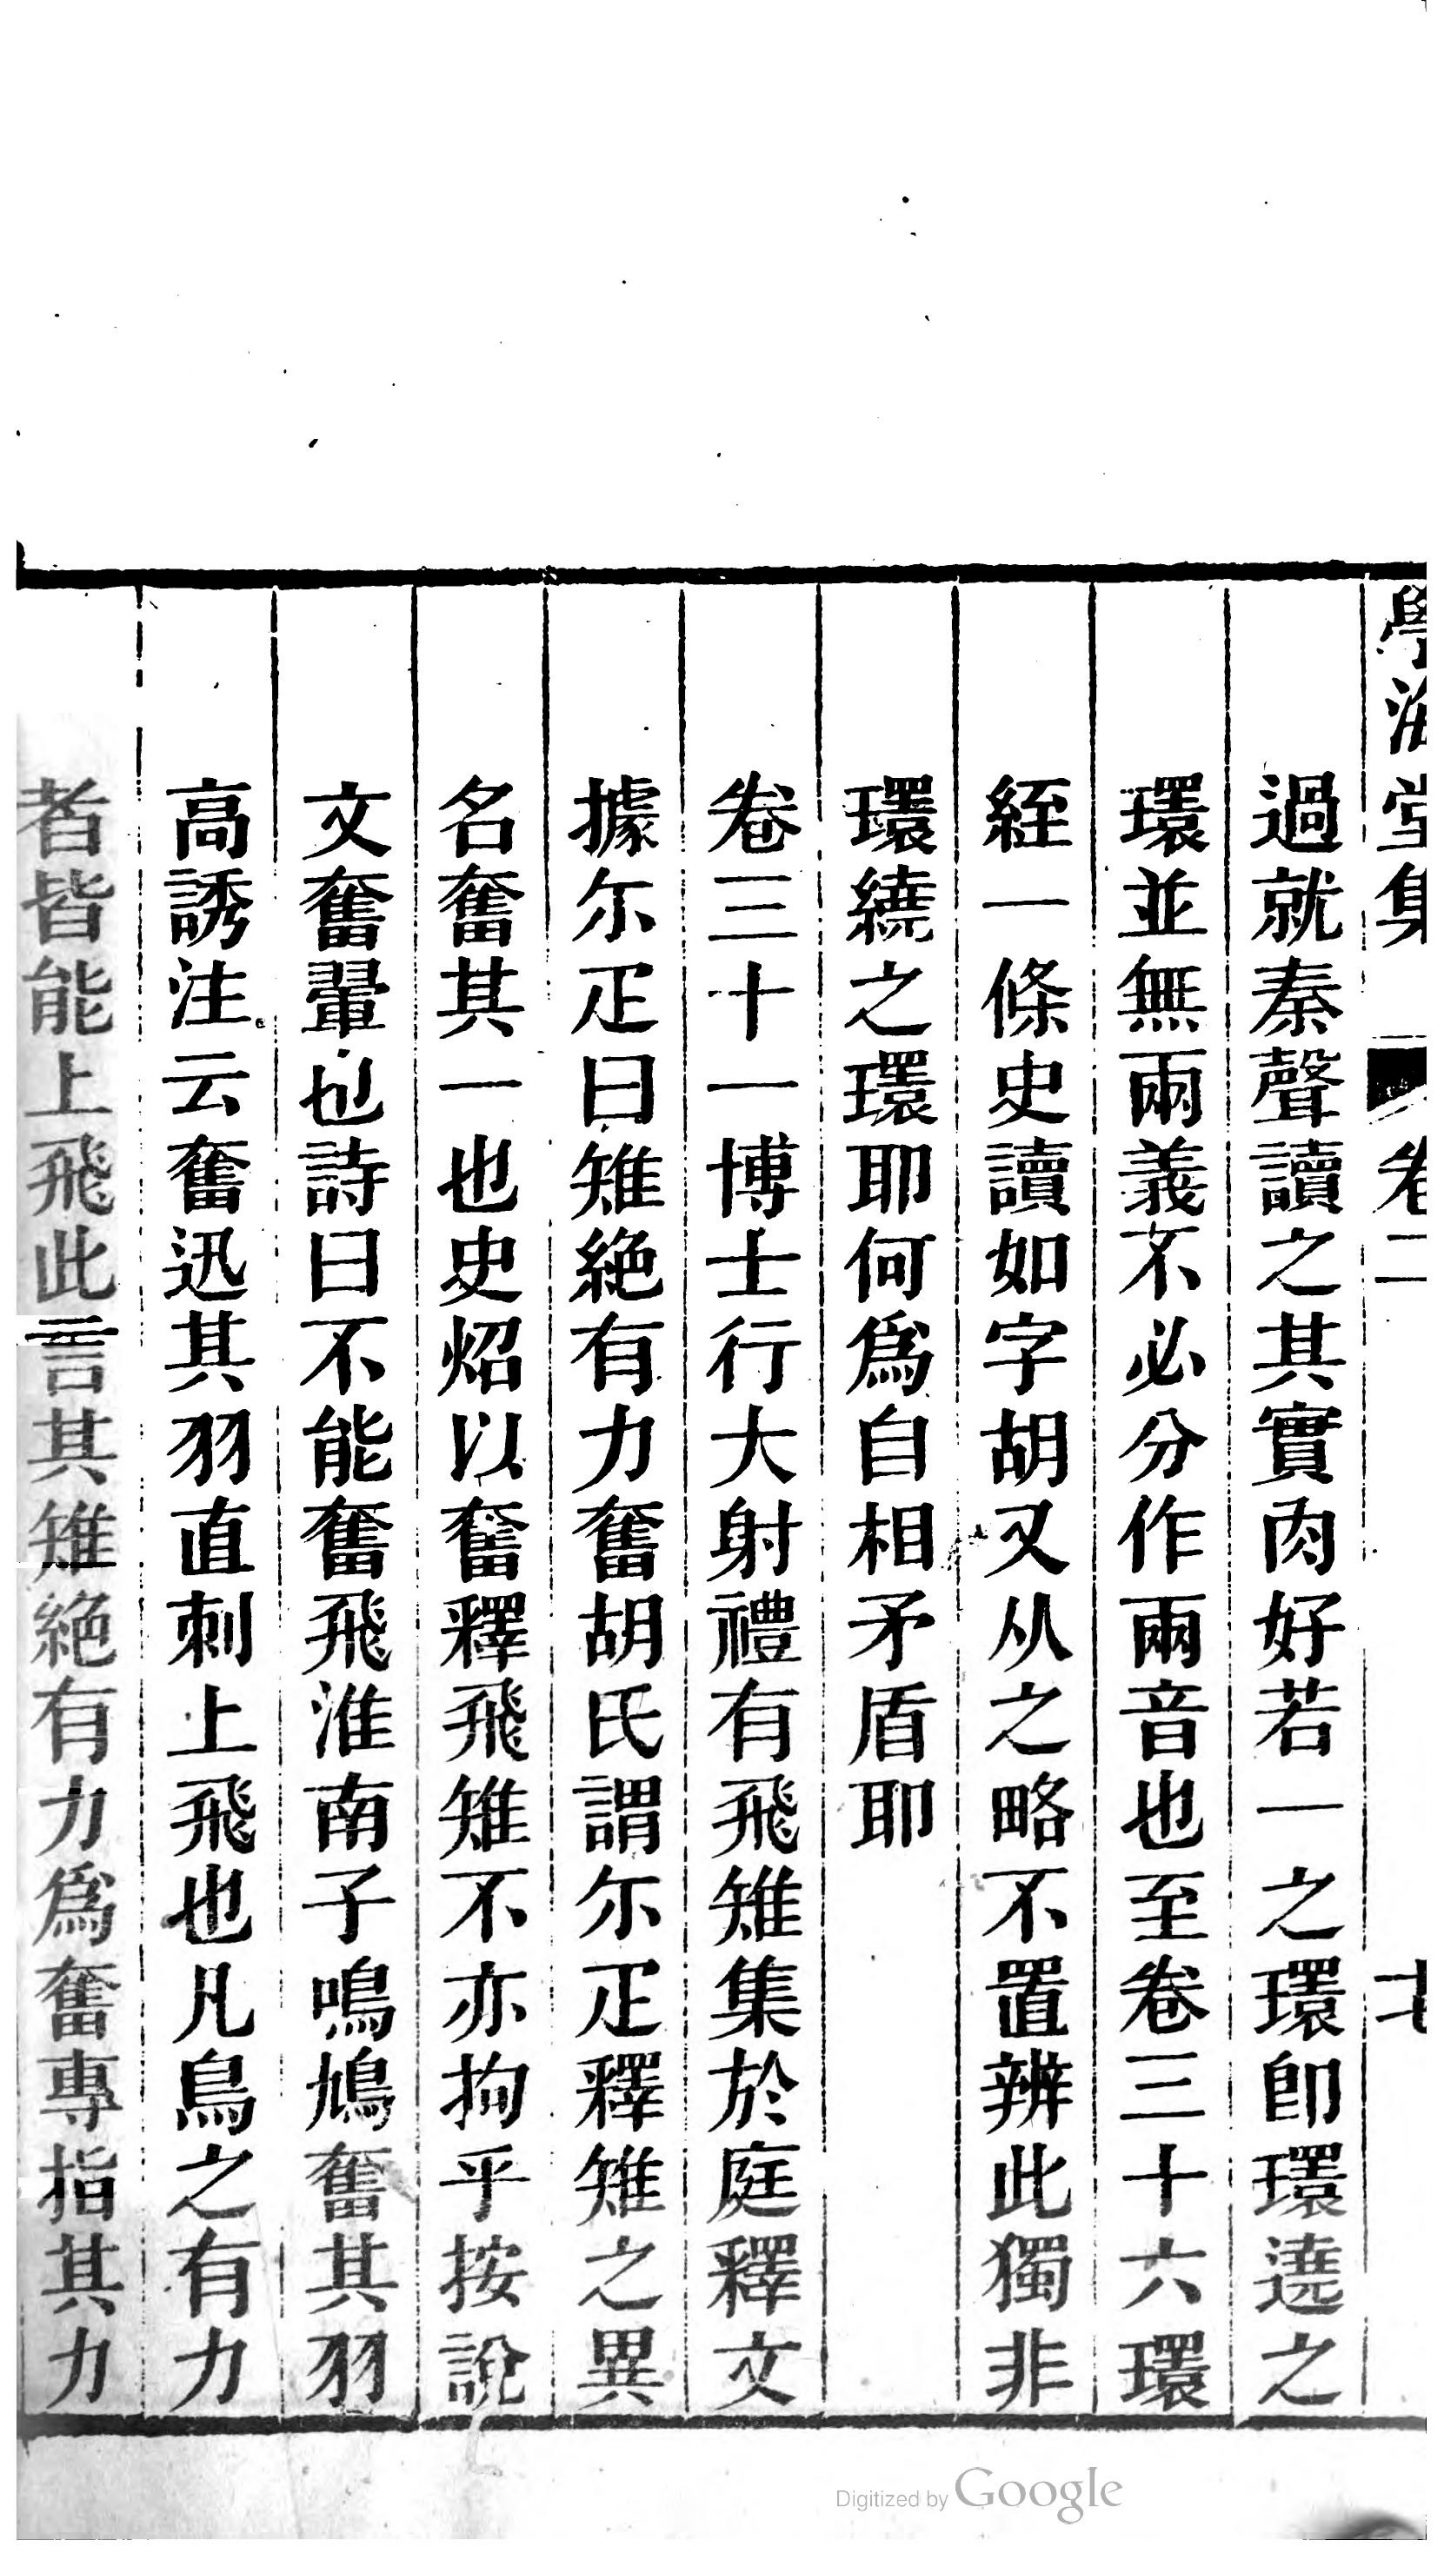 學海堂集 卷二
過就秦聲讀之其實肉好若一之環卽環遶之
環並無兩義不必分作兩音也至卷三十六環
絰一條史讀如字胡又从之略不置辨此獨非
環繞之環耶何爲自相矛盾耶
卷三十一博士行大射禮有飛雉集於庭釋文
據尔疋曰雉絶有力奮胡氏謂尔疋釋雉之異
名奮其一也史炤以奮釋飛雉不亦拘乎按說
文奮翬也詩曰不能奮飛淮南子鳴鳩奮其羽
高誘注云奮迅其羽直刺上飛也凡鳥之有力
者皆能上飛此言其雉絶有力爲奮專指其力
Digitized by Google